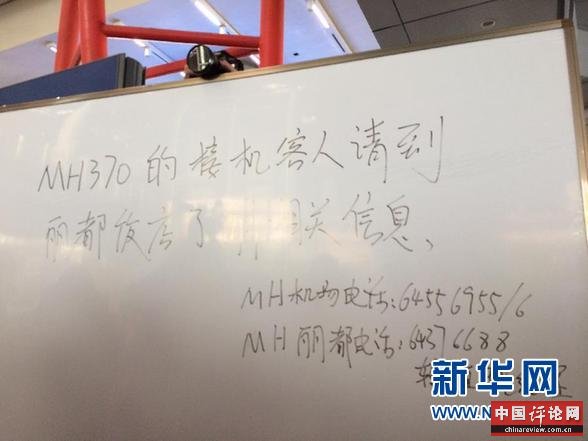 MH370的接机客人请到
丽都饭店了解相关信息、
MH机场电话:64556955/6
MH丽都电话:64376688
转
新华网
中国评论网
chinareview.com